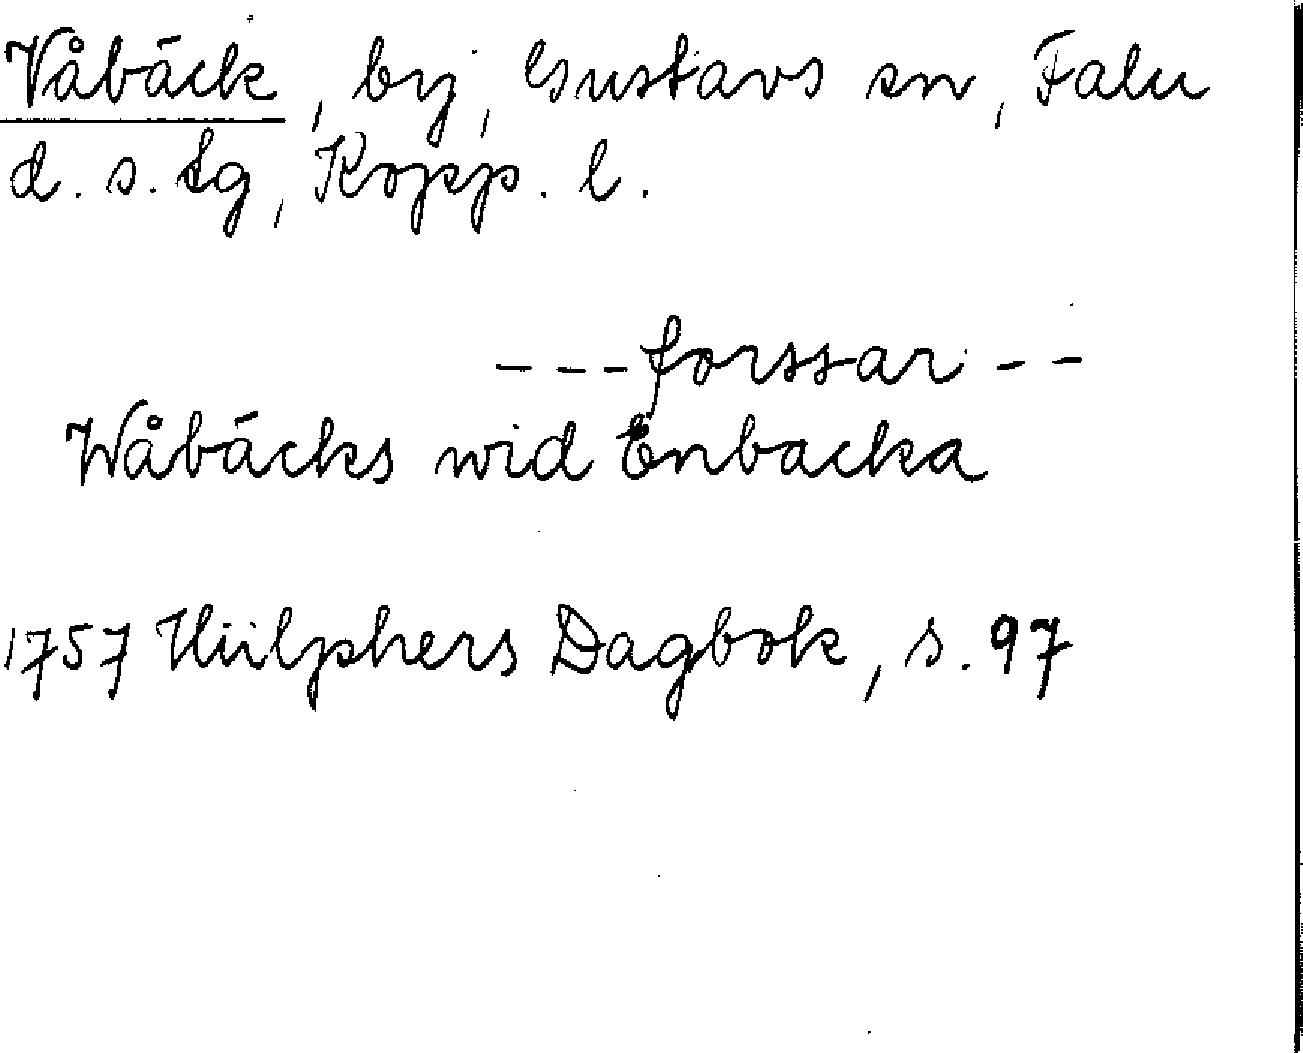 Våbäck, by, Gustavs sn, Falu
d. s. tg, Kopp. l.
--- forssar --
Wåbäcks wid Enbacka
1757 Hülphers Dagbok, s. 97